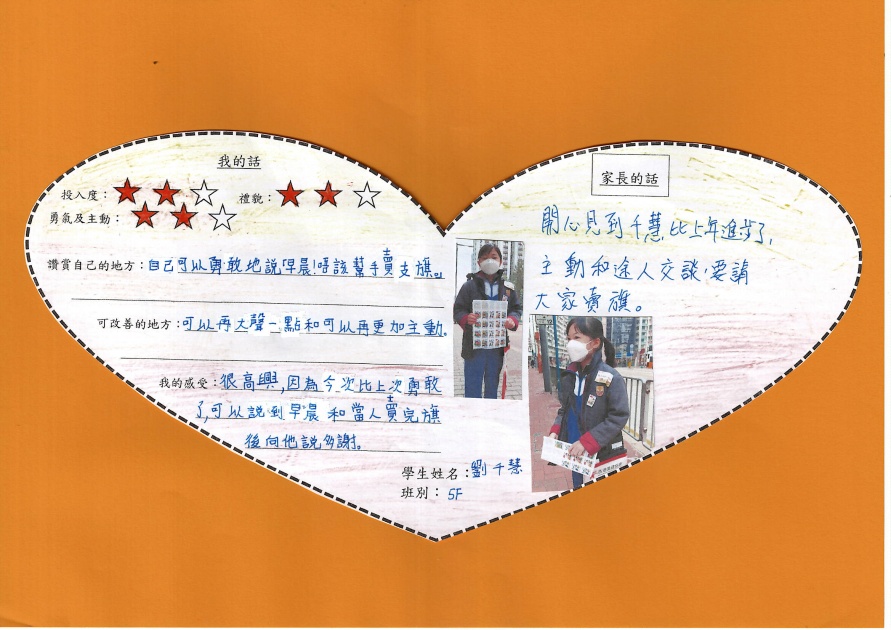 我的話
投入度：★★☆ 禮貌：★★☆
勇氣及主動：★★☆
讚賞自己的地方：自己可以勇敢地説「早晨!唔該幫手賣支旗。」
可改善的地方：可以再大聲一點和可以再更加主動.
我的感受：很高興,因為今次比上次勇敢
了,可以説到早晨 和當人賣完旗
後向他説多謝。
學生姓名：劉千慧
班別： 5F
家長的話
開心見到千慧比上年進步了,
主動和途人交談,要請
大家賣旗。